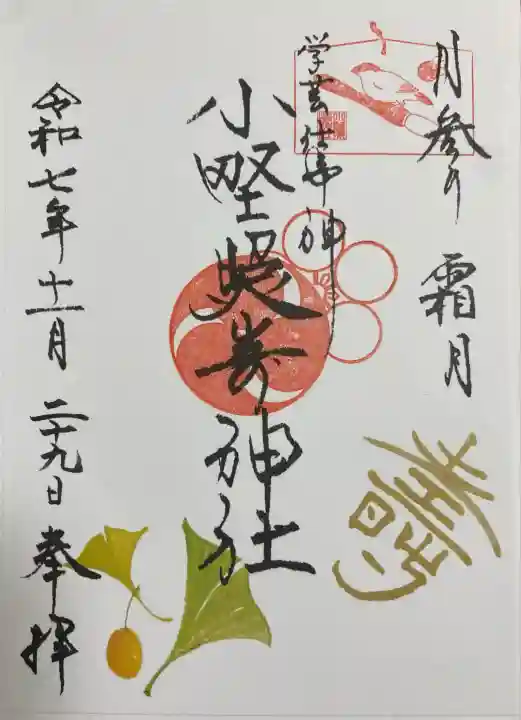 月参り 霜月
学芸仕事神
小野照崎神社
令和七年十一月二十九日 奉拝